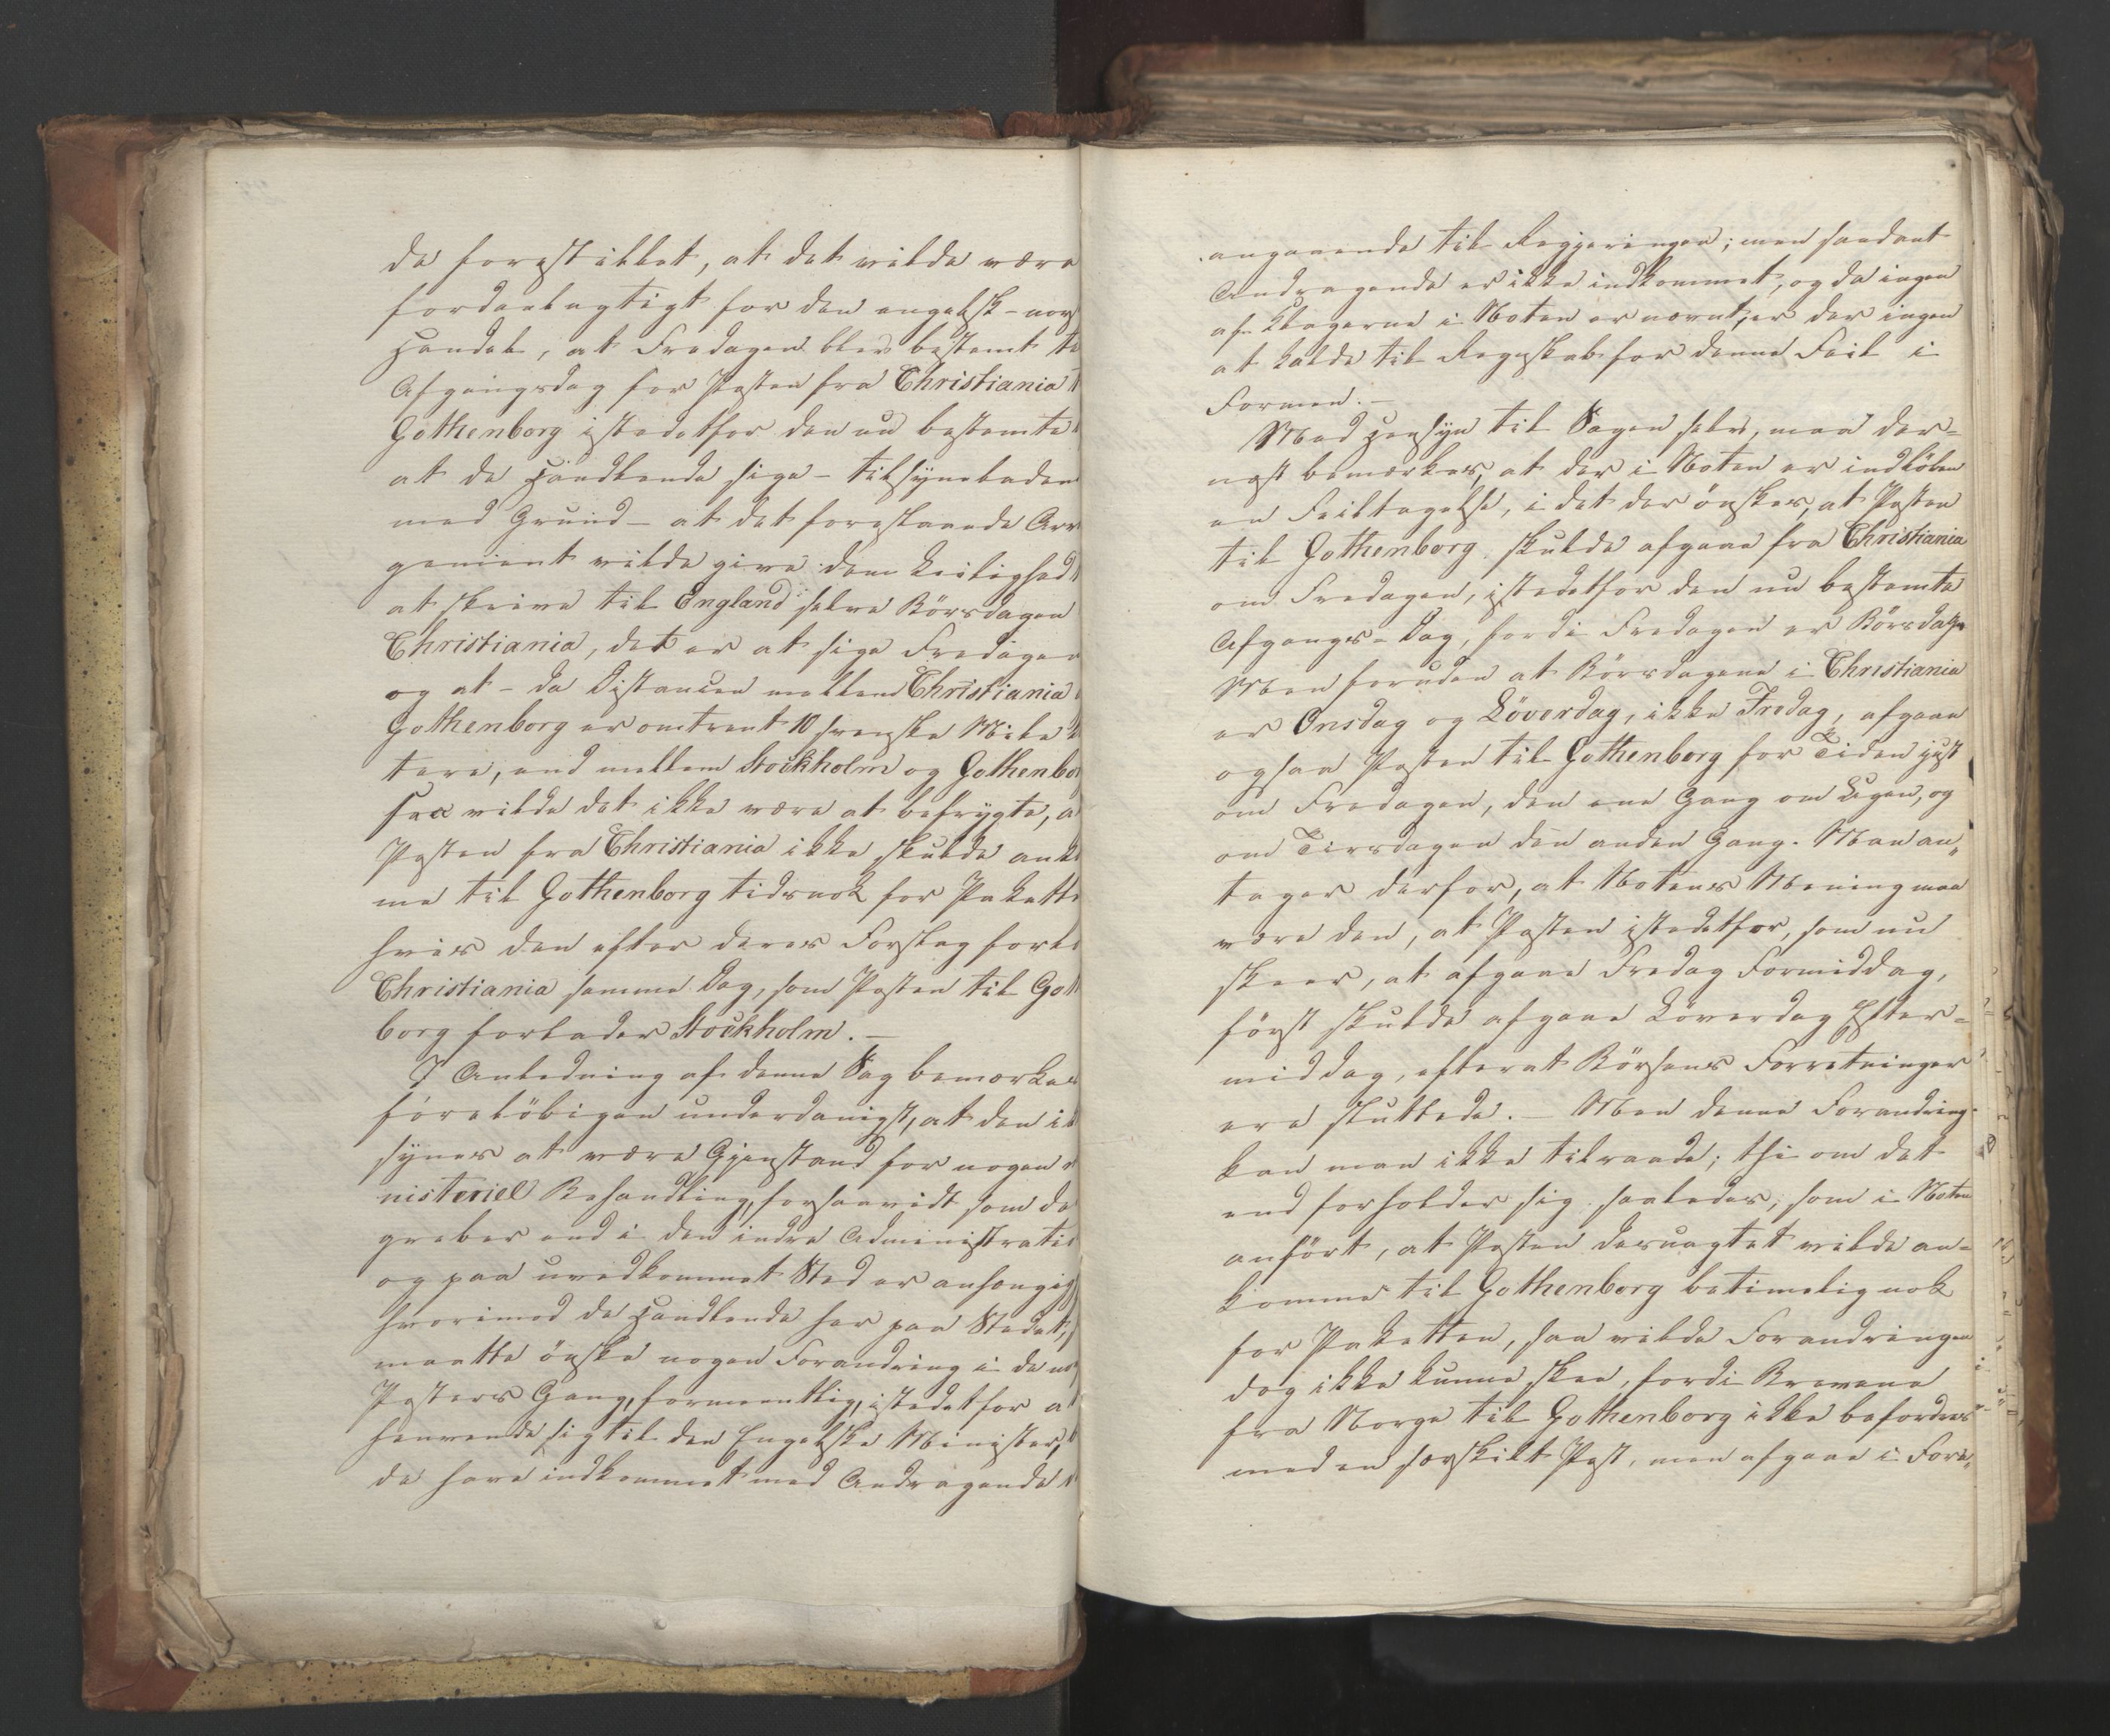 de forestillet, at det vilde være
fordeelagtigt for den engelsk-nors
Handel, at Fredagen blev bestemt ti
Afgangsdag for Posten fra Christiania t
Gothenborg istedetfor den nu bestemte
at de Handlende sige – tilsyneladen
med Grund – at det foreslaaede Arr
gement vilde give dem Leilighed
at skrive til England selve Börsdagen
Christiania, det er at sige Fredagen
og at – da Distancen mellem Christiania
Gothenborg er omtrent 10 svenske Mile k
tere, end mellem Stockholm og Gothenbor
saa vilde det ikke være at befrygte, a
Posten fra Christiania ikke skulde anko
me til Gothenborg tidsnok for Pakette
hvis den efter deres Forslag forlo
Christiania samme Dag, som Posten til Got
borg forlader Stockholm. –
I Anledning af denne Sag bemærkes
foreløbigen underdanigst, at den ik
synes at være Gjenstand for nogen
nisteriel Behandling, forsaavidt som de
greber ind i den indre Administratio
og paa uvedkommet Sted er anhængig
hvorimod de Handlende her paa Stedet,
maatte önske nogen Forandring i de no
Posters Gang, formeentlig, istedetfor a
henvende sig til den Engelske Minister,
de have indkommet med Andragende
angaaende til Regjeringen; men saadant
Andragende er ikke indkommet, og da ingen
af Klagerne i Noten er nævnt, er der ingen
at kalde til Regnskab for denne Feil i
Formen. –
Med Hensyn til Sagen selv, maa der=
næst bemærkes, at der i Noten er indlöben
en Feiltagelse, i det der önskes, at Posten
til Gothenborg skulde afgaae fra Christiania
om Fredagen, istedetfor den nu bestemte
Afgangs-Dag, fordi Fredagen er Börsdag.
Men foruden at Börsdagene i Christiania
er Onsdag og Löverdag, ikke Fredag, afgaaer
ogsaa Posten til Gothenborg for Tiden just
om Fredagen, den ene Gang om Ugen, og
om Tirsdagen den anden Gang. Man an„
tager derfor, at Notens Mening maa
være den, at Posten istedetfor, som nu
skeer, at afgaae Fredag Formiddag,
först skulde afgaae Löverdag Efter=
middag, efterat Börsens Forretninger
ere sluttede. – Men denne Forandring
kan man ikke tilraade; thi om det
end forholder sig saaledes, som i Noten
anfört, at Posten desuagtet vilde an=
komme til Gothenborg betimelig nok
for Paketten, saa vilde Forandringen
dog ikke kunne skee, fordi Brevene
fra Norge til Gothenborg ikke befordres
med en særskilt Post, men afgaae i Fore„